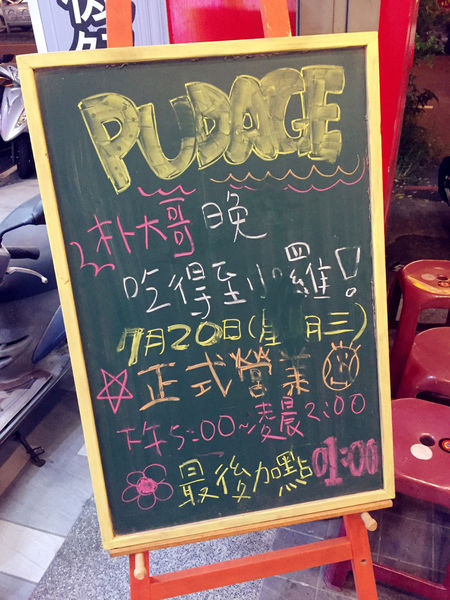 PUDAGE
朴大哥 晚
吃得到小羅!
7月20日(星 月三)
正式營業
下午5:00~凌晨2:00
最後加點01:00